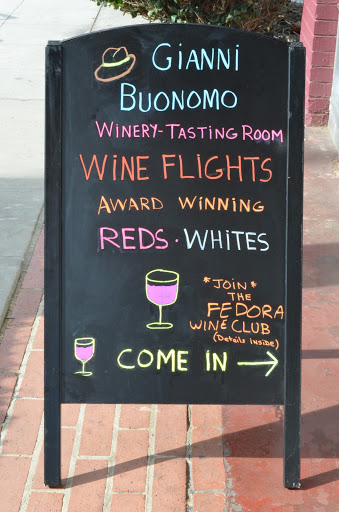 GIANNI
BUONOMO
WINERY-TASTING ROOM
WINE FLIGHTS
AWARD WINNING
REDS · WHITES
*JOIN*
THE
FEDORA
WINE CLUB
(Details inside)
COME IN →